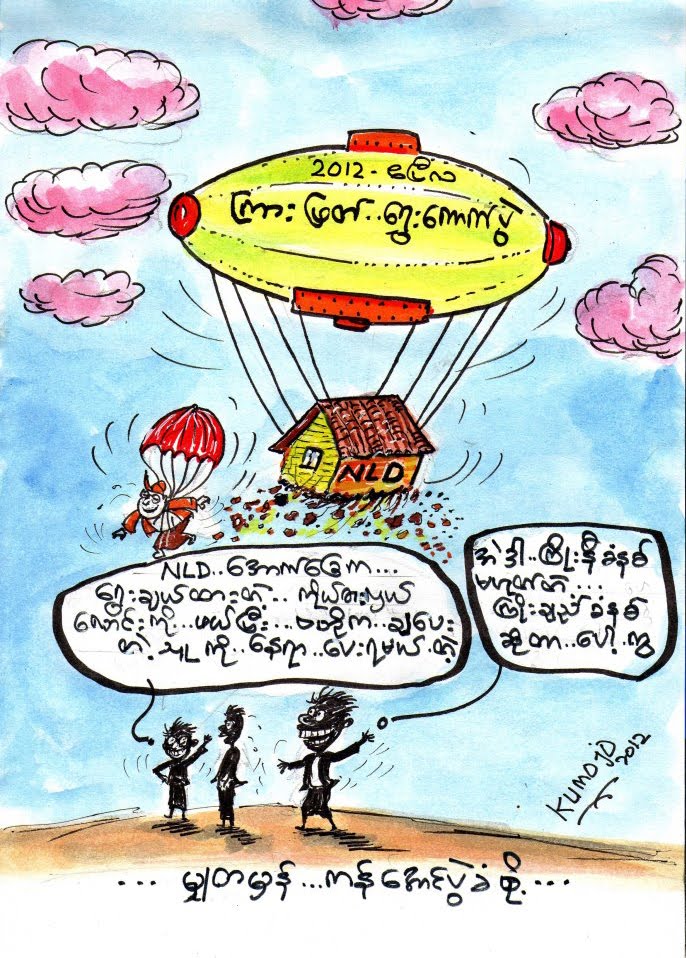 2012 - ဧပြီလ
ကြားဖြတ်..ရွေးကောက်ပွဲ
NLD
NLD..အောက်ခြေက...
ရွေးချယ်ထားတဲ့..ကိုယ်စားလှယ်
လောင်းကို...ဖယ်ပြီး...ဗဟိုက..ချပေး
တဲ့သူကို..နေရာ..ပေးရမယ်.တဲ့
အဲဒါ..ကြိုးနီခံနစ်
မဟုတ်ဘဲ...
ကြိုးချည်ခံနစ်
ဆိုတာ..ပေါ့..ကွ
KUMO JO
2012
... မျှတမှန်...ကန်အောင်ပွဲခံစို့....